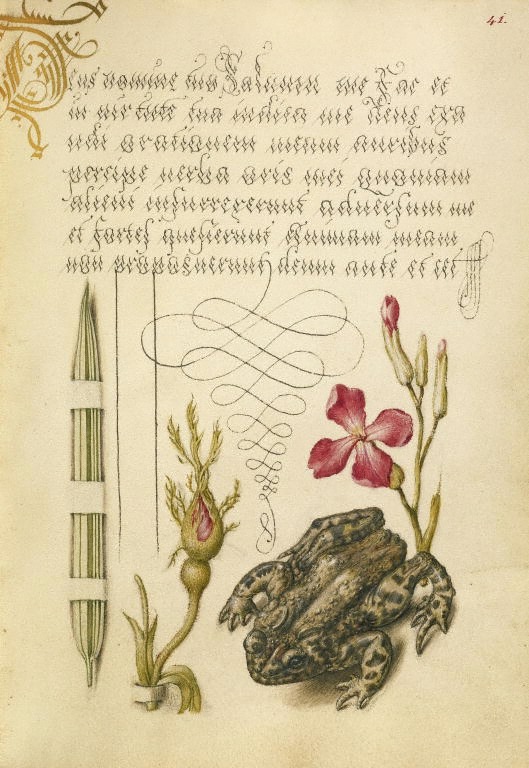 41.
Deus nomine tuo Saluum me Fac et
in uirtute tua iudica me Deus exa
udi orationem meam auribus
percipe uerba oris mei quoniam
alieni insurrexerunt aduersum me
et fortes quesierunt Animam meam
non proposuerunt deum ante et cet